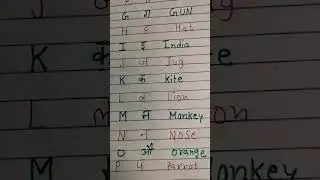 G ग GUN
H ह Hat
I इ India
J ज Jug
K क Kite
L ल Lion
M म Monkey
N न NOSE
O ओ Orange
P प Parrot